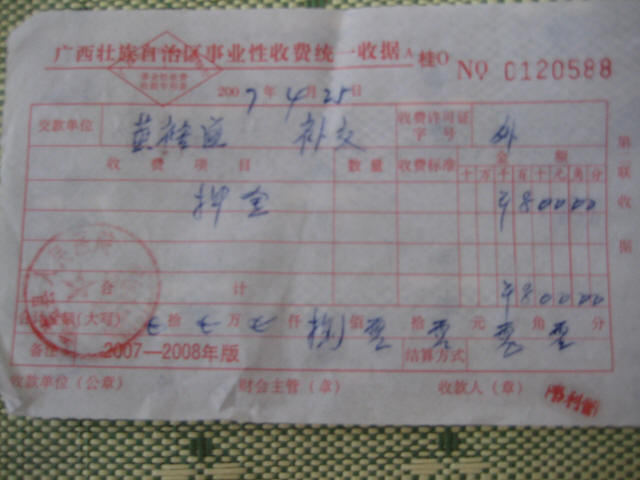 广西壮族自治区事业性收费统一收据 A 桂O
NO 0120588
2007年4月25日
交款单位 补交 收费许可证字号 外
收费项目 数量 收费标准 金额
十万千百十元角分
押金 ¥80000
合计 ¥80000
合计金额(大写) 拾 万 仟 捌佰零拾零元零角零分
备注 2007—2008年版 结算方式
收款单位(公章) 财会主管(章) 收款人(章)
第二联 收据